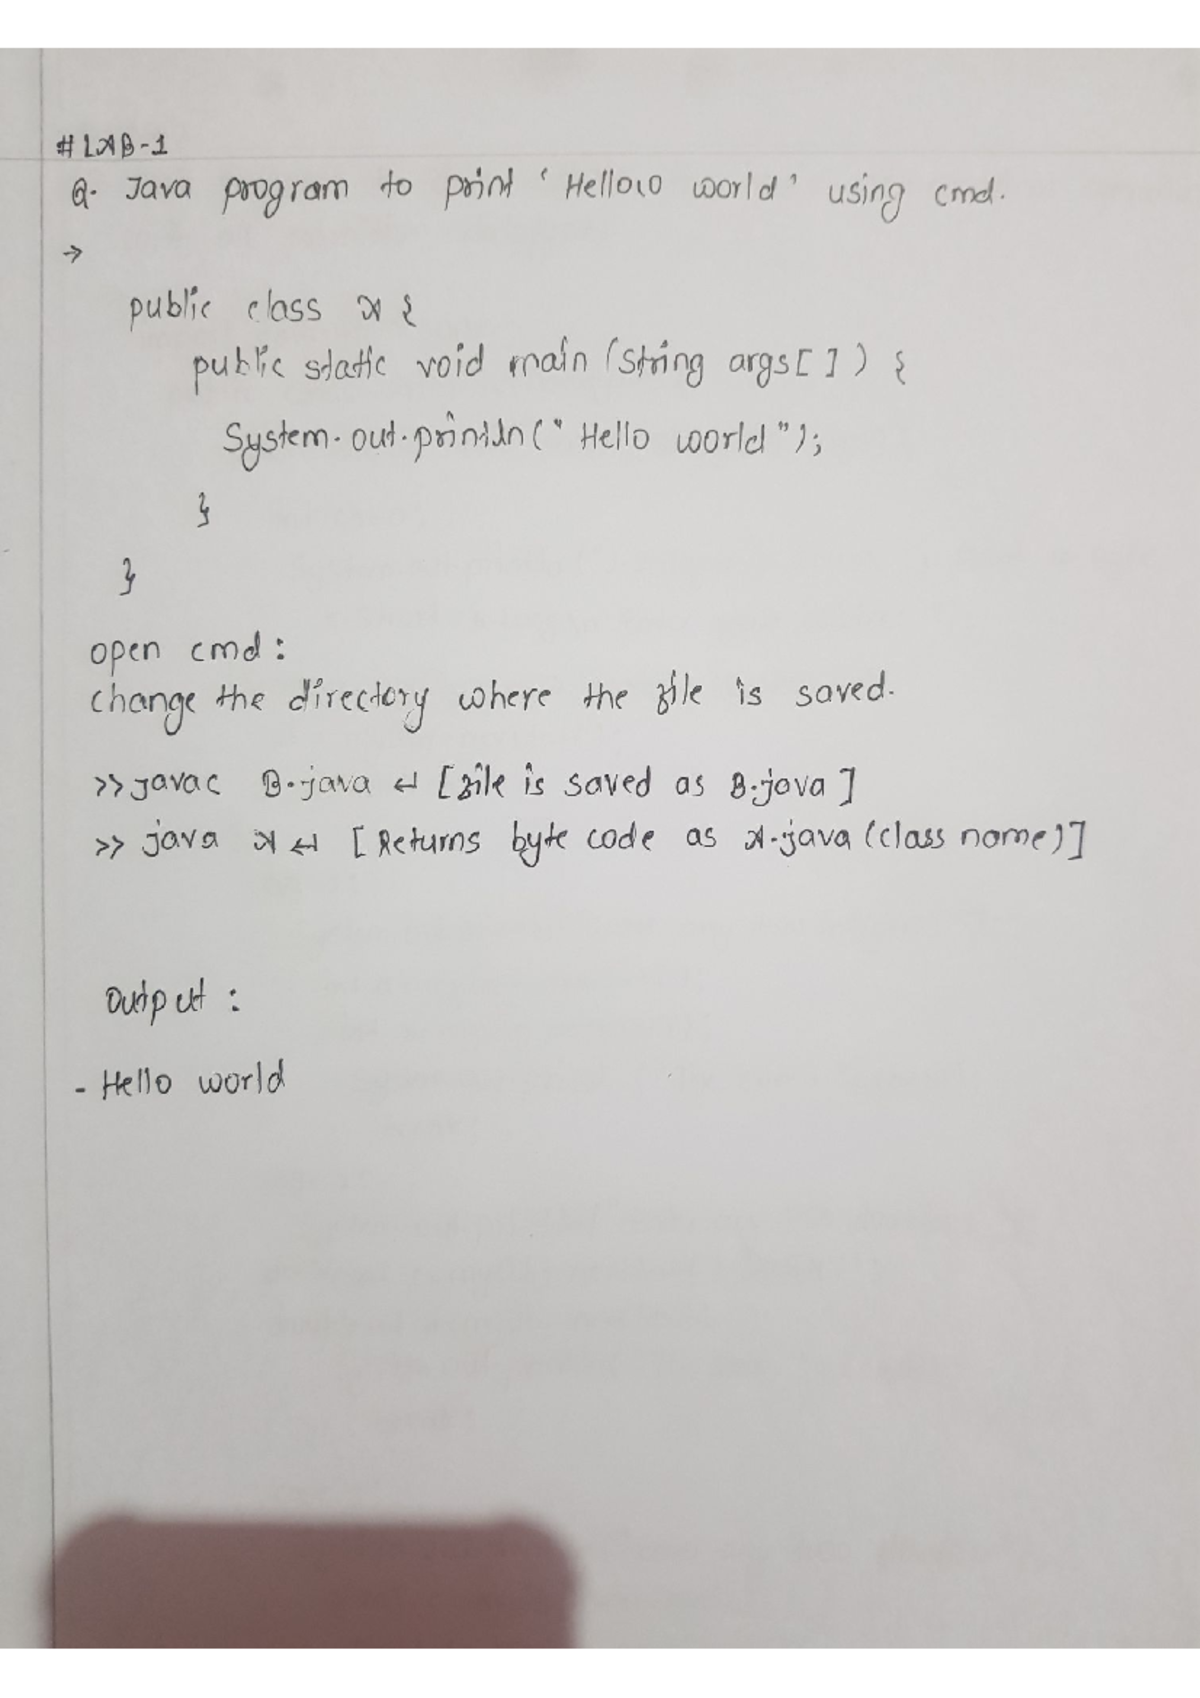 # LAB-1
Q. Java program to print 'Hello world' using cmd.
→
public class A {
public static void main (String args[ ]) {
System.out.println(" Hello world ");
}
}
open cmd :
change the directory where the file is saved.
>> javac B.java ↵ [file is saved as B.java ]
>> java A ↵ [ Returns byte code as A.java (class name)]
Output :
- Hello world